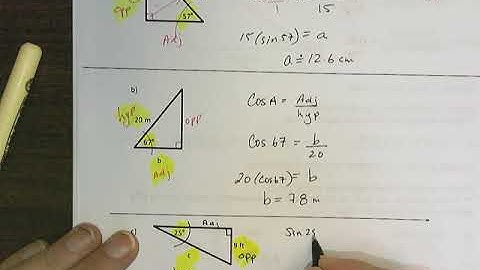 opp
57°
Adj
1
15
15(sin57) = a
a ≐ 12.6 cm
b)
hyp
20 m
opp
67°
b
Adj
CosA = Adj
hyp
Cos 67 = b
20
20(cos67) = b
b = 7.8 m
c)
25°
Adj
9 ft
opp
c
Sin 25